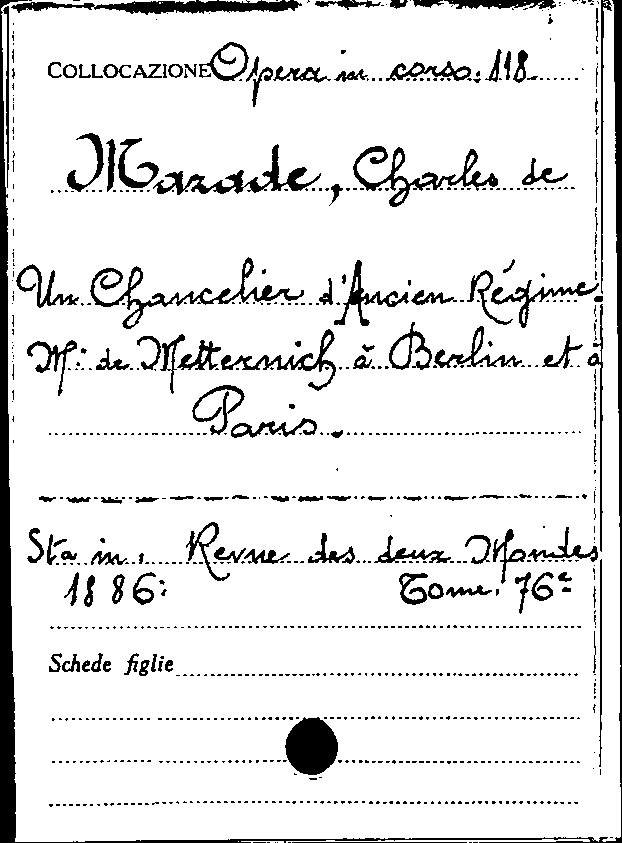 COLLOCAZIONE Opera in corso. 118
Mazade, Charles de
Un Chancelier d'Ancien Régime.
Mr. de Metternich à Berlin et à
Paris.
Sta in: Revue des deux Mondes
1886: Tome. 76e
Schede figlie